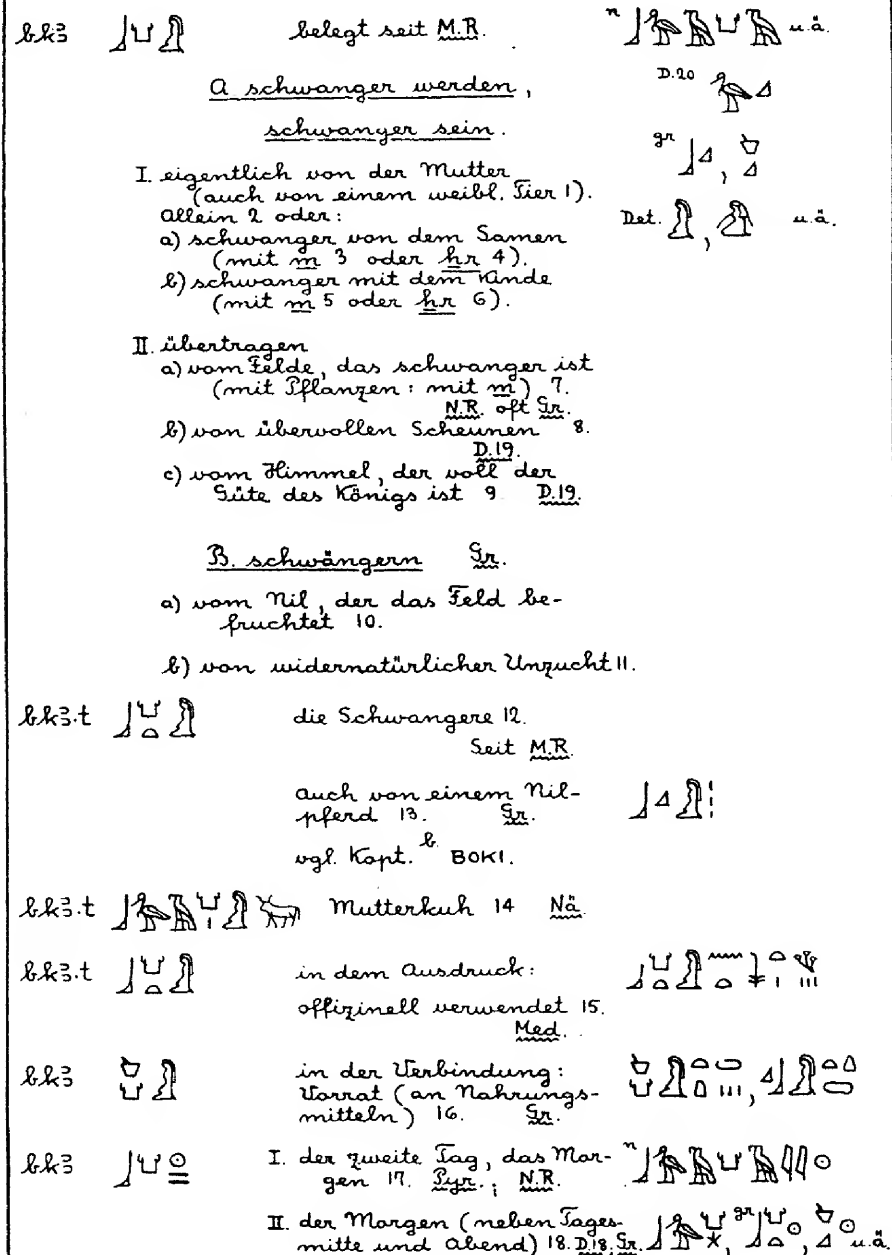 bkꜣ belegt seit M.R. n u.ä.
A schwanger werden, D.20
schwanger sein. gr
I. eigentlich von der Mutter
(auch von einem weibl. Tier 1).
Allein 2 oder: Det. , u.ä.
a) schwanger von dem Samen
(mit m 3 oder ḥr 4).
b) schwanger mit dem Kinde
(mit m 5 oder ḥr 6).
II. übertragen
a) vom Felde, das schwanger ist
(mit Pflanzen: mit m) 7.
N.R. oft Gr.
b) von übervollen Scheunen 8.
D.19.
c) vom Himmel, der voll der
Güte des Königs ist 9 D.19.
B. schwängern Gr.
a) vom Nil, der das Feld be-
fruchtet 10.
b) von widernatürlicher Unzucht 11.
bkꜣ.t die Schwangere 12.
Seit M.R.
auch von einem Nil-
pferd 13. Gr.
vgl. Kopt. b ⲂⲞⲔⲒ.
bkꜣ.t Mutterkuh 14 Nä
bkꜣ.t in dem Ausdruck:
offizinell verwendet 15.
Med.
bkꜣ in der Verbindung:
Vorrat (an Nahrungs-
mitteln) 16. Gr.
bkꜣ I. der zweite Tag, das Mor- n
gen 17. Pyr.; N.R.
II. der Morgen (neben Tages- gr
mitte und Abend) 18. D.18, Gr. u.ä.